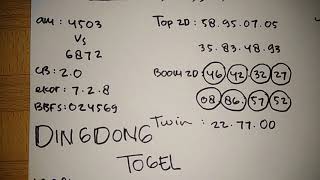 am : 4503
Vs
6872
CB : 2.0
ekor : 7.2.8
BBFS : 024569
Top 2D : 58.95.07.05
35.83.48.93
BOOM 2D : 46 42 32 27
08 86. 57 52
Twin : 22.77.00
DINGDONG
TOGEL